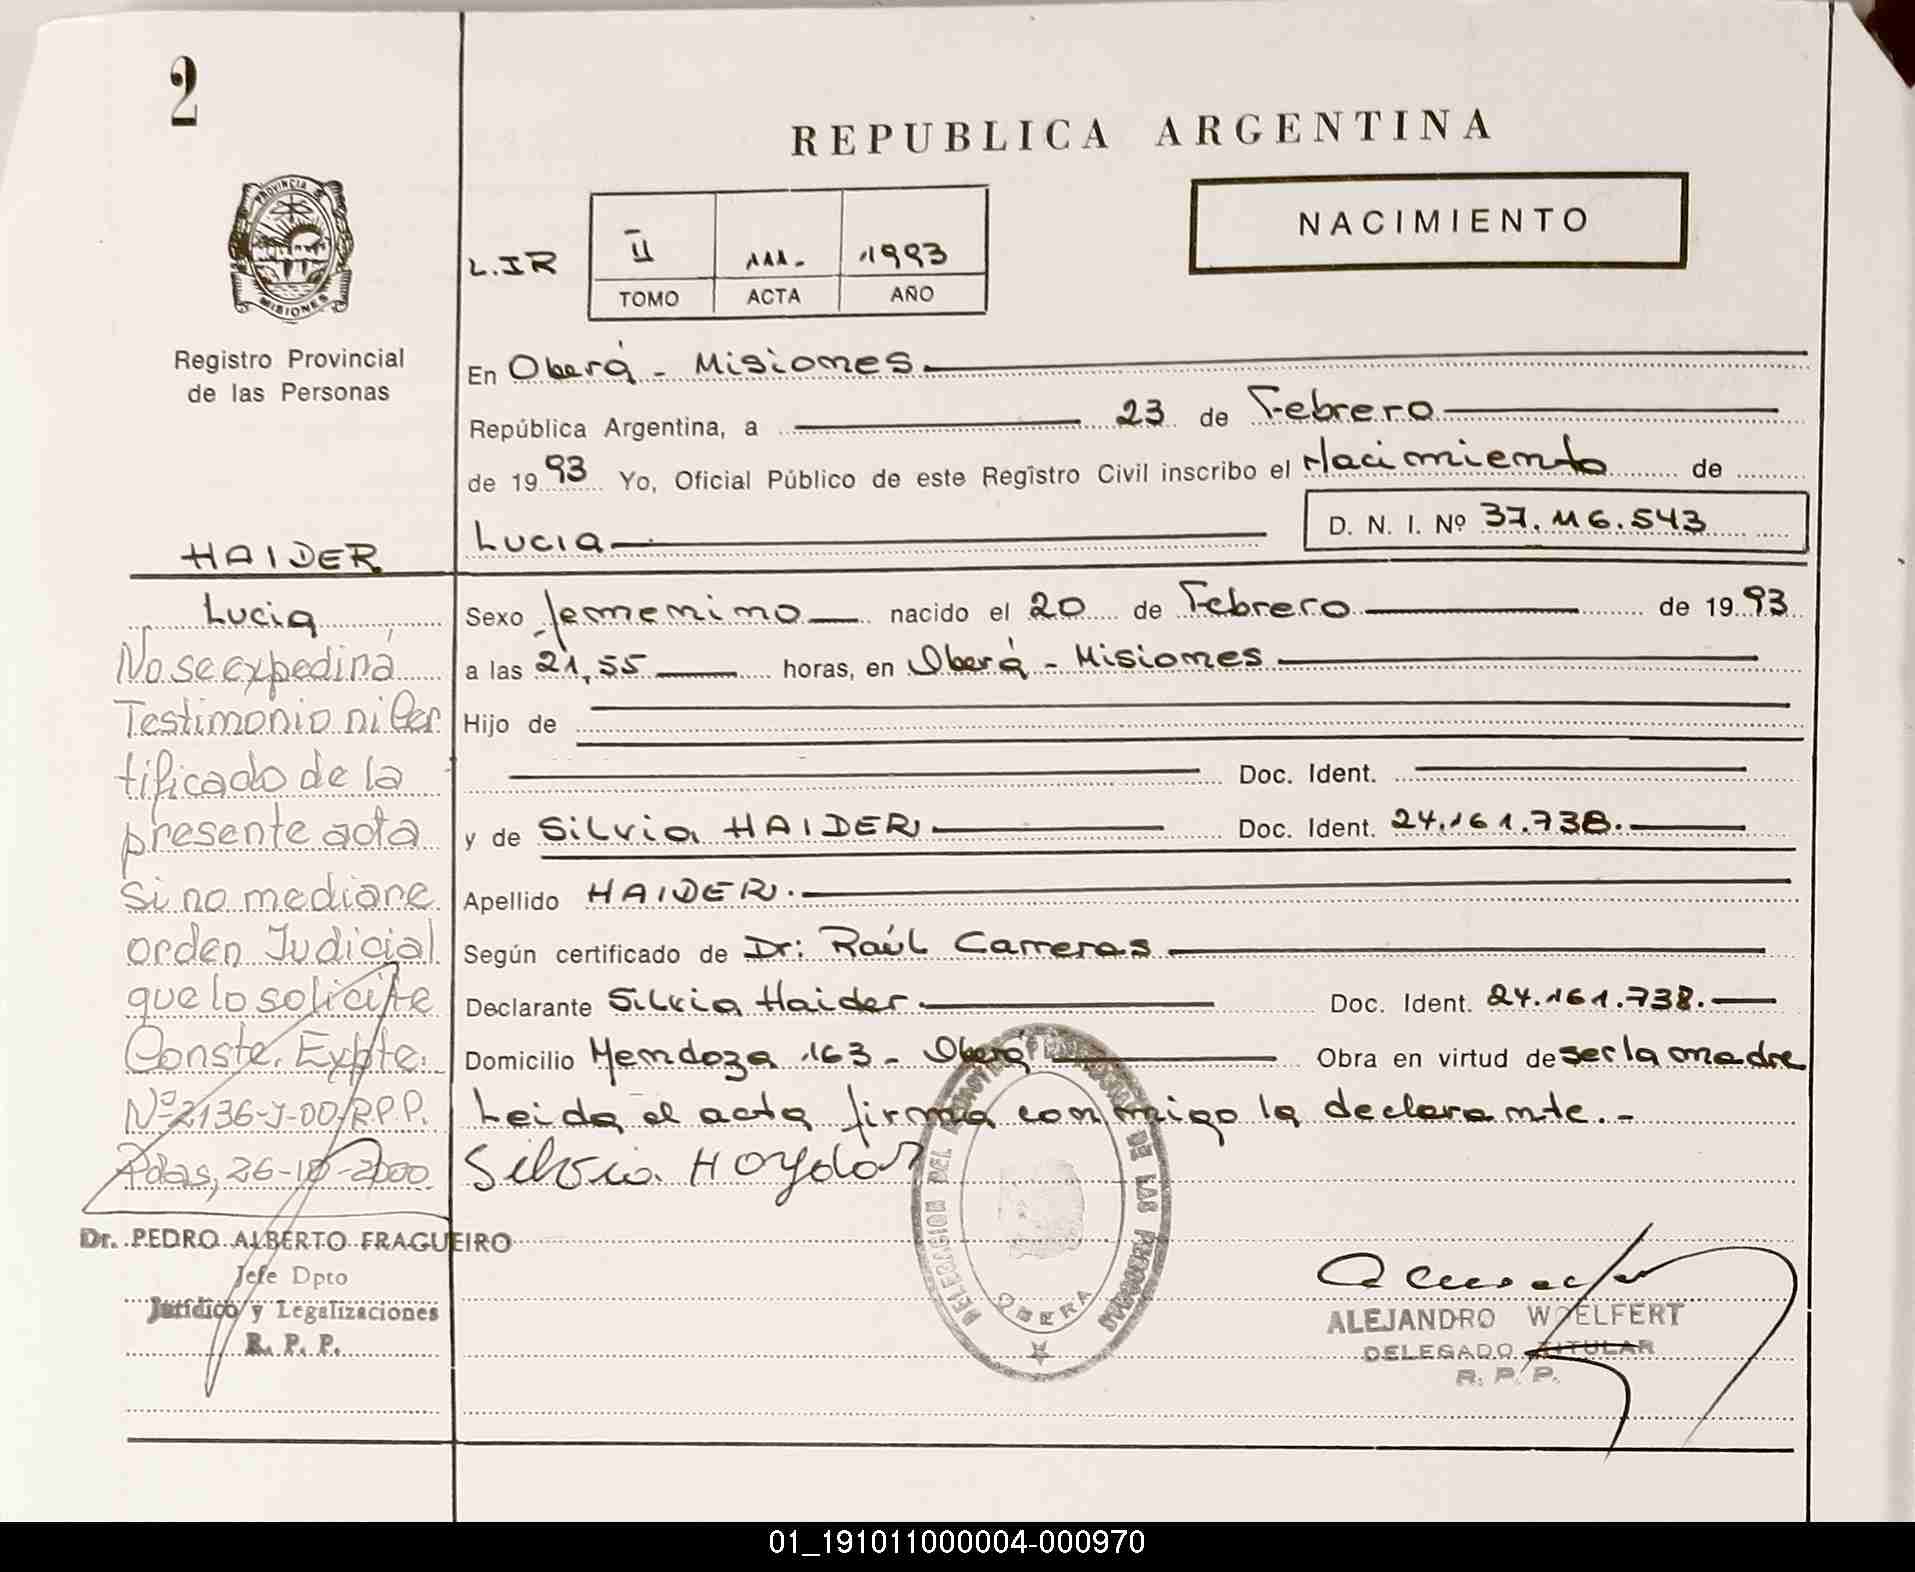 2
REPUBLICA ARGENTINA
NACIMIENTO
PROVINCIA
MISIONES
L.IR
II 111.- 1993
TOMO ACTA AÑO
Registro Provincial
de las Personas
En Oberá - Misiones
República Argentina, a 23 de Febrero
de 1993 Yo, Oficial Público de este Registro Civil inscribo el Nacimiento de
Lucia D. N. I. Nº 37.116.543
HAIDER
Lucia
Sexo femenino nacido el 20 de Febrero de 1993
a las 21,55 horas, en Oberá - Misiones
Hijo de
Doc. Ident.
y de Silvia HAIDER Doc. Ident. 24.161.738.
Apellido HAIDER.
Según certificado de Dr: Raúl Carreras
Declarante Silvia Haider Doc. Ident. 24.161.738.
Domicilio Mendoza 163 - Oberá Obra en virtud de ser la madre
Leida el acta firma conmigo la declarante.-
Silvia
No se expedirá
Testimonio ni Cer
tificado de la
presente acta
si no mediare
orden Judicial
que lo solicite
Conste. Expte.
Nº 2136-J-00/R.P.P.
Pdas, 26-10-2000
Dr. PEDRO ALBERTO FRAGUEIRO
Jefe Dpto
Jurídico y Legalizaciones
R. P. P.
DELEGACION DEL REGISTRO PROVINCIAL DE LAS PERSONAS
OBERA
ALEJANDRO WOELFERT
DELEGADO TITULAR
R. P. P.
01_191011000004-000970